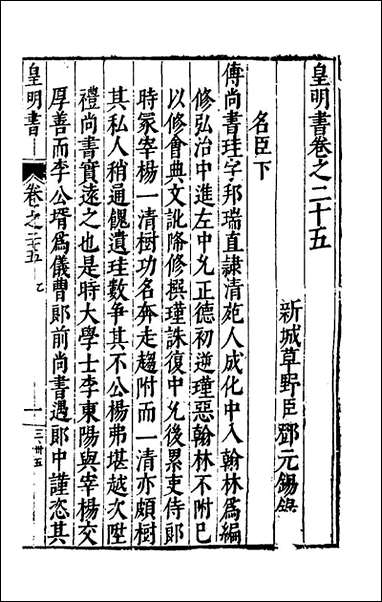 皇明書卷之二十五
新城草野臣鄧元錫錄
名臣下
傅尚書珪字邦瑞直隸清苑人成化中入翰林爲編
修弘治中進左中允正德初逆瑾惡翰林不附已
以修會典文訛降修撰瑾誅復中允後累吏侍郎
時冢宰楊一清樹功名奔走趨附而一清亦頗樹
其私人稍通餽遺珪數爭其不公楊弗堪越次陞
禮尚書實遠之也是時大學士李東陽與宰楊交
厚善而李公壻爲儀曹郎前尚書遇郎中謹恣其
皇明書
卷之二十五
一
三卅五